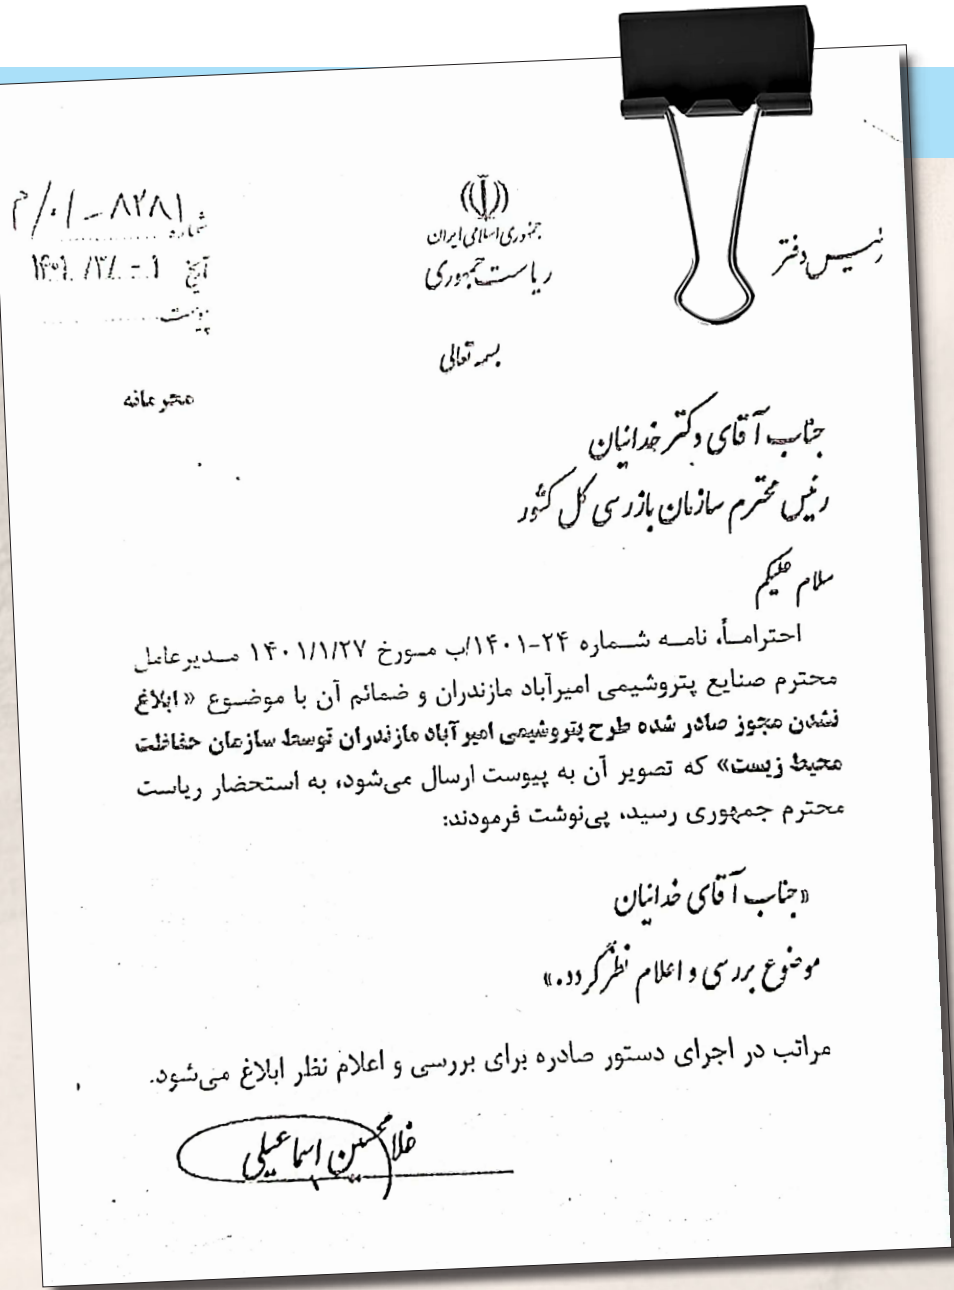 جمهوری اسلامی ایران
ریاست جمهوری
رئیس دفتر
شماره م/۰۱-۸۲۸۱
تاریخ
پیوست
بسمه تعالی
محرمانه
جناب آقای دکتر خدائیان
رئیس محترم سازمان بازرسی کل کشور
سلام علیکم
احتراماً، نامه شماره ۲۴-۱۴۰۱/ب مورخ ۱۴۰۱/۱/۲۷ مدیرعامل
محترم صنایع پتروشیمی امیرآباد مازندران و ضمائم آن با موضوع «ابلاغ
نشدن مجوز صادر شده طرح پتروشیمی امیرآباد مازندران توسط سازمان حفاظت
محیط زیست» که تصویر آن به پیوست ارسال می‌شود، به استحضار ریاست
محترم جمهوری رسید، پی‌نوشت فرمودند:
«جناب آقای خدائیان
موضوع بررسی و اعلام نظر گردد.»
مراتب در اجرای دستور صادره برای بررسی و اعلام نظر ابلاغ می‌شود.
غلامحسین اسماعیلی